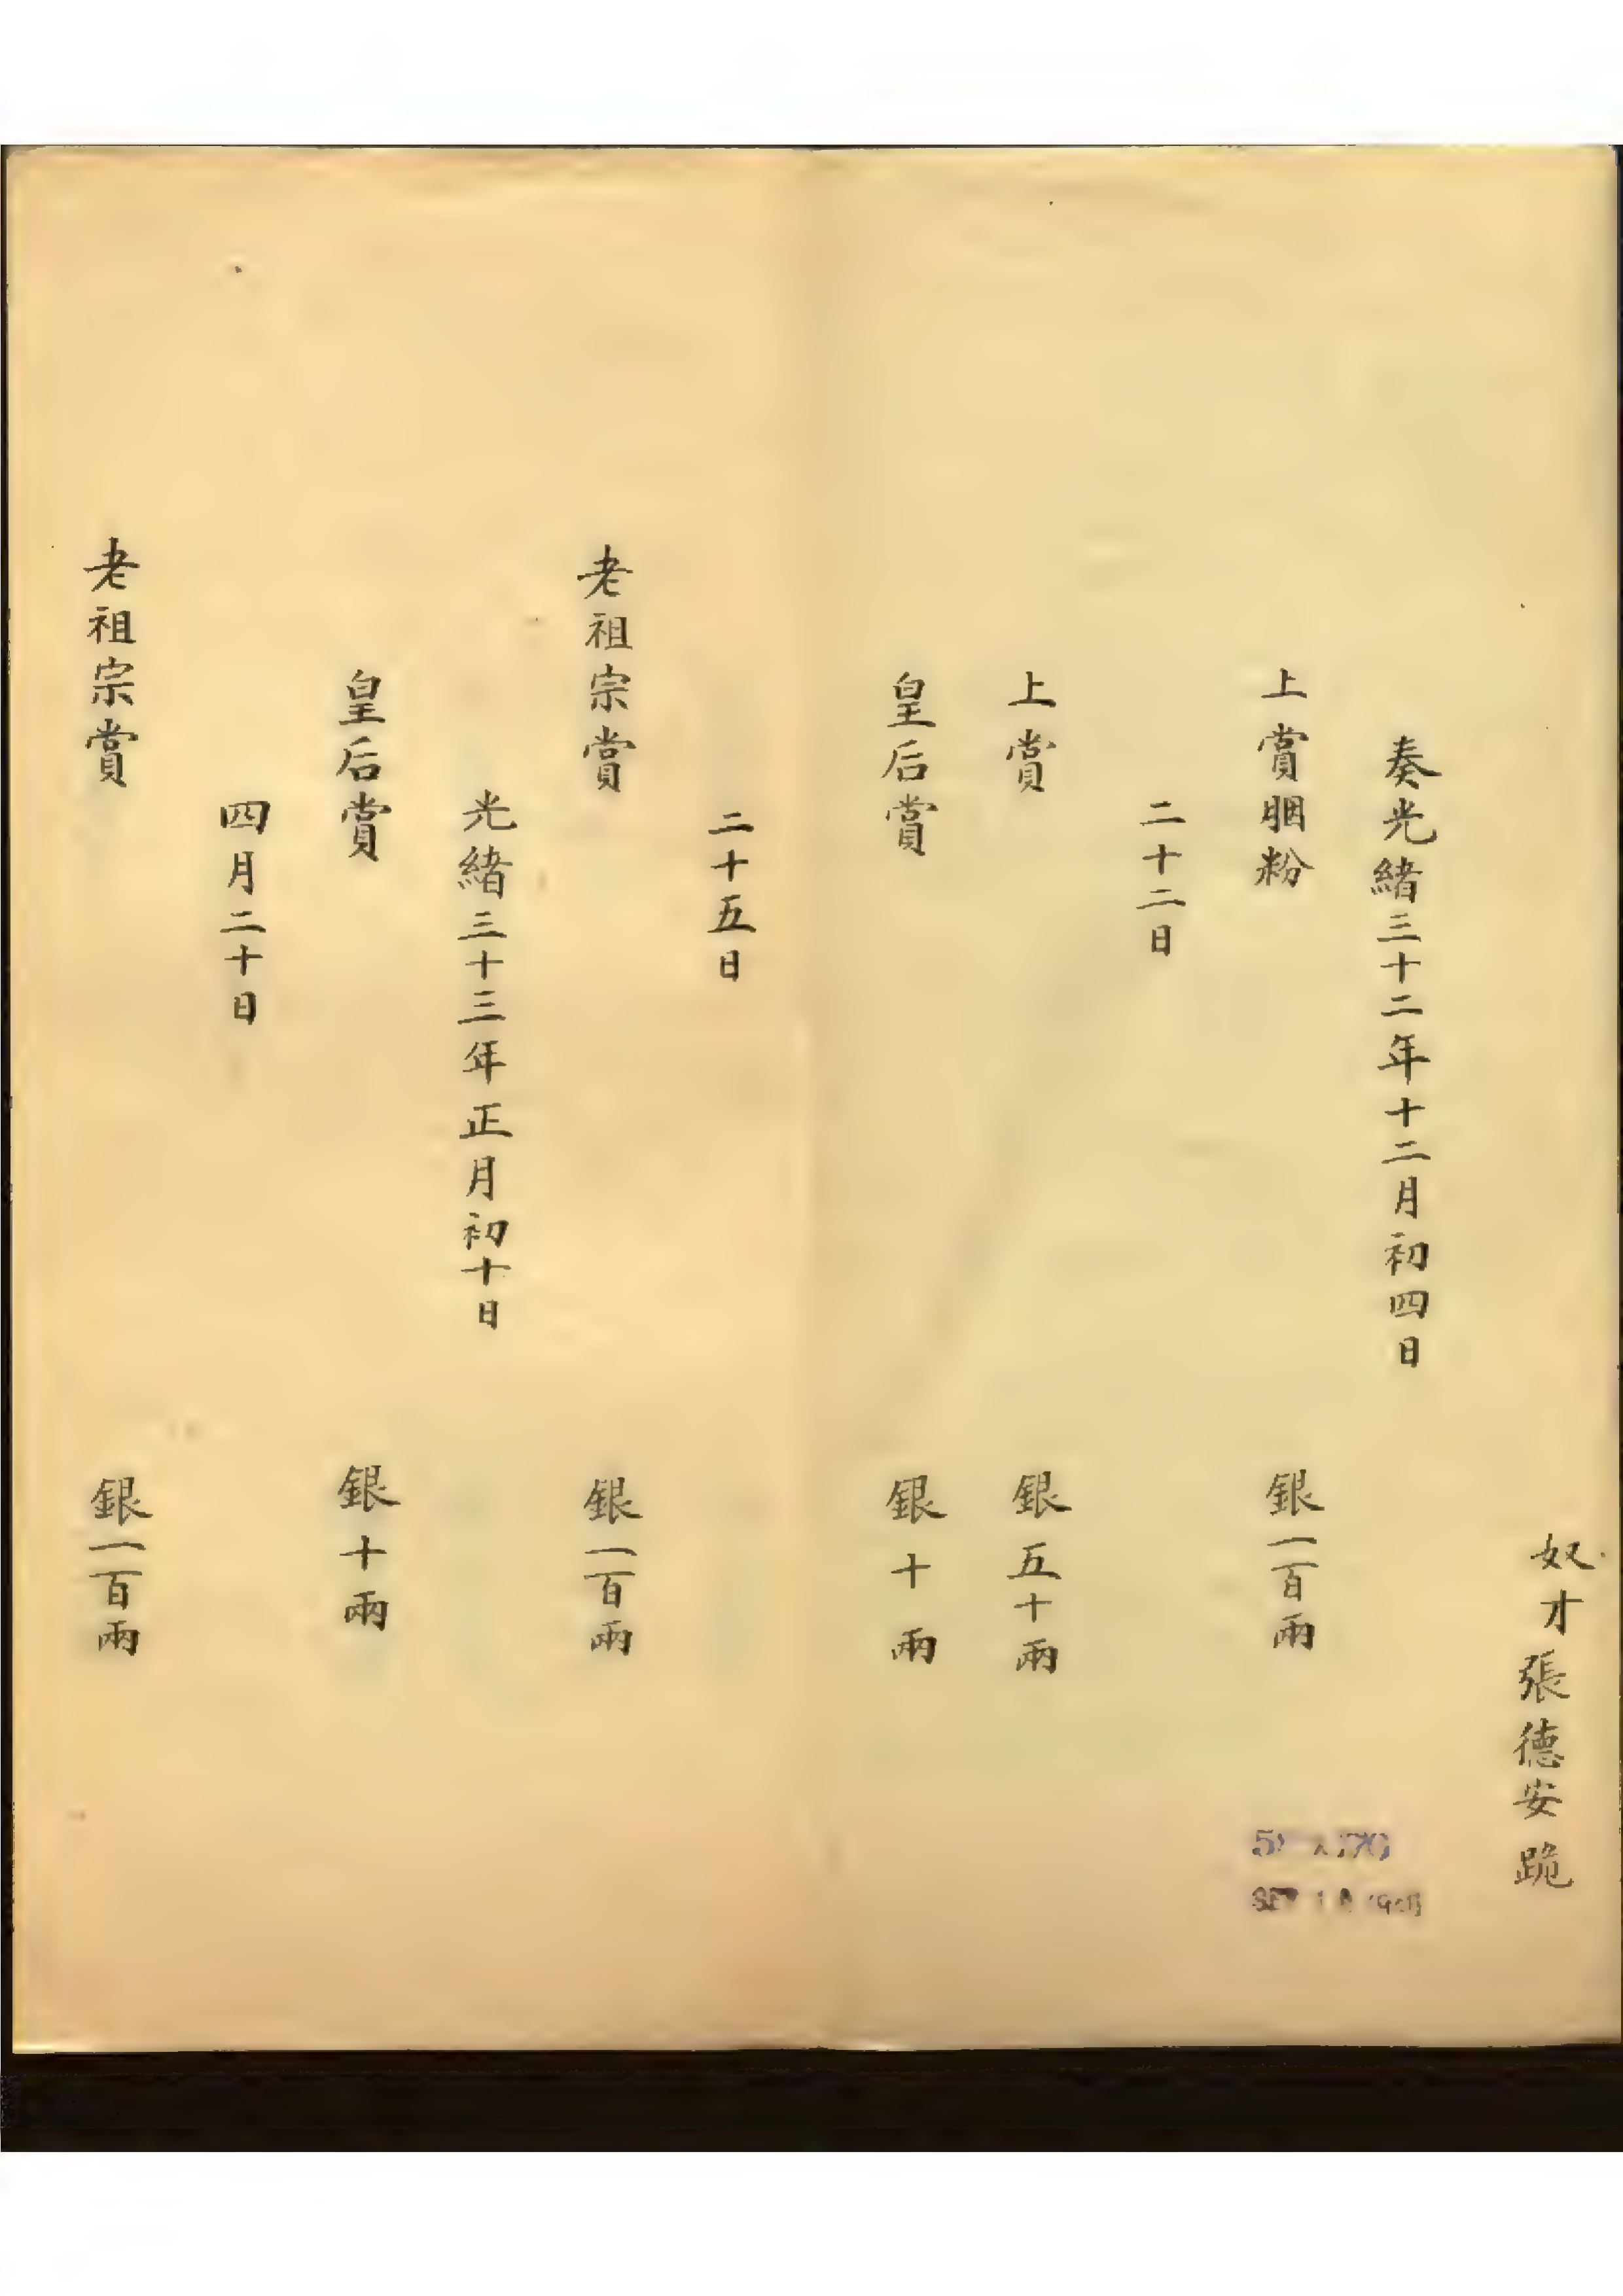 奴才張德安跪
奏光緒三十二年十二月初四日
上賞胭粉 銀一百兩
二十二日
上賞 銀五十兩
皇后賞 銀十兩
二十五日
老祖宗賞 銀一百兩
光緒三十三年正月初十日
皇后賞 銀十兩
四月二十日
老祖宗賞 銀一百兩